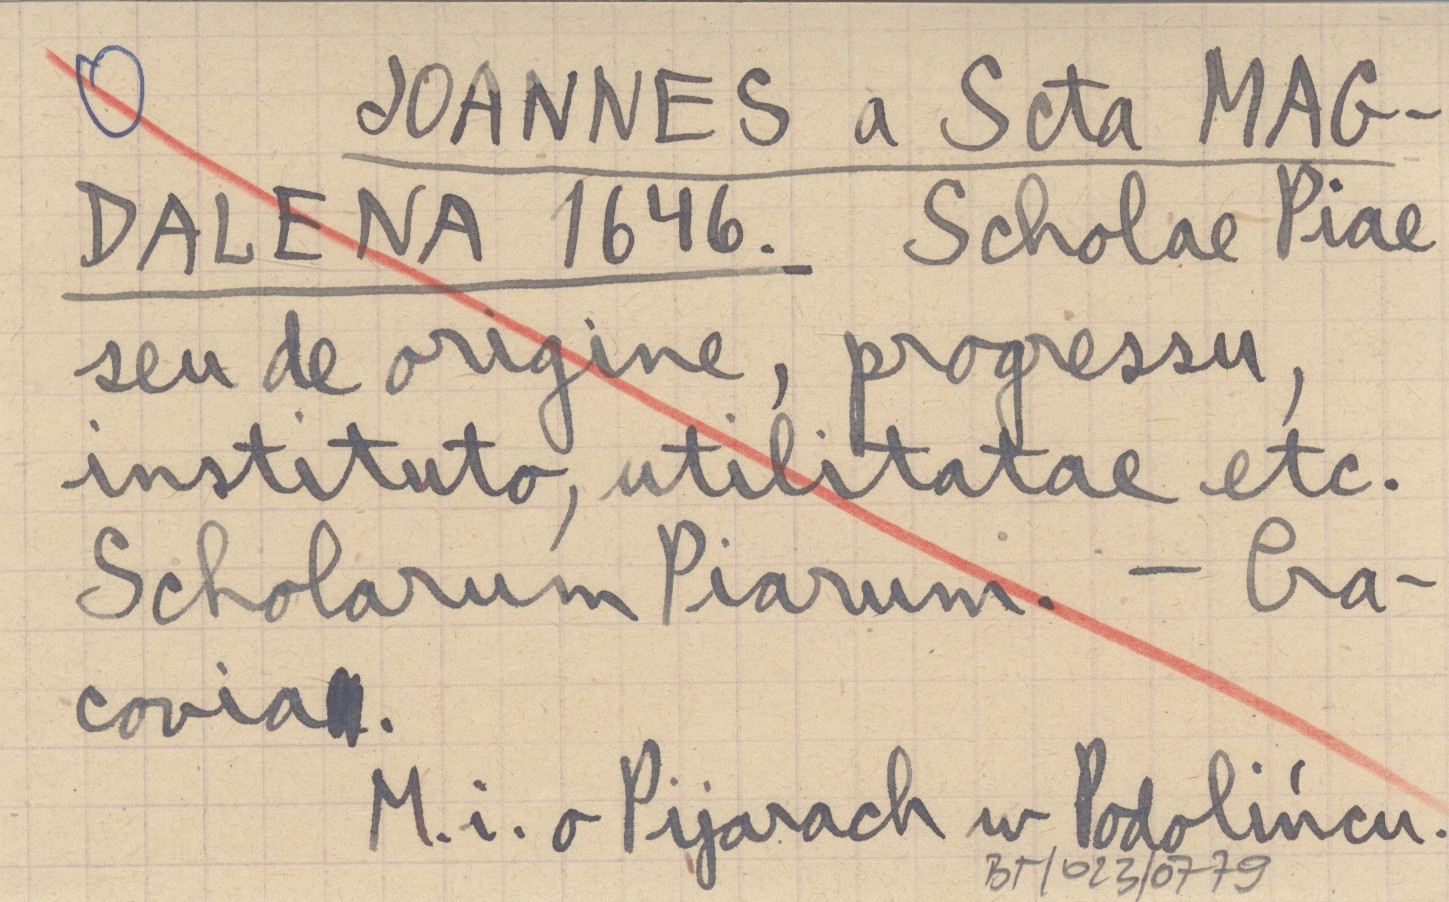 JOANNES a Scta MAG-
DALENA 1646. Scholae Piae
seu de origine, progressu,
instituto, utilitatae etc.
Scholarum Piarum. — Cra-
covia.
M. i. o Pijarach w Podolińcu.
BT/023/0779